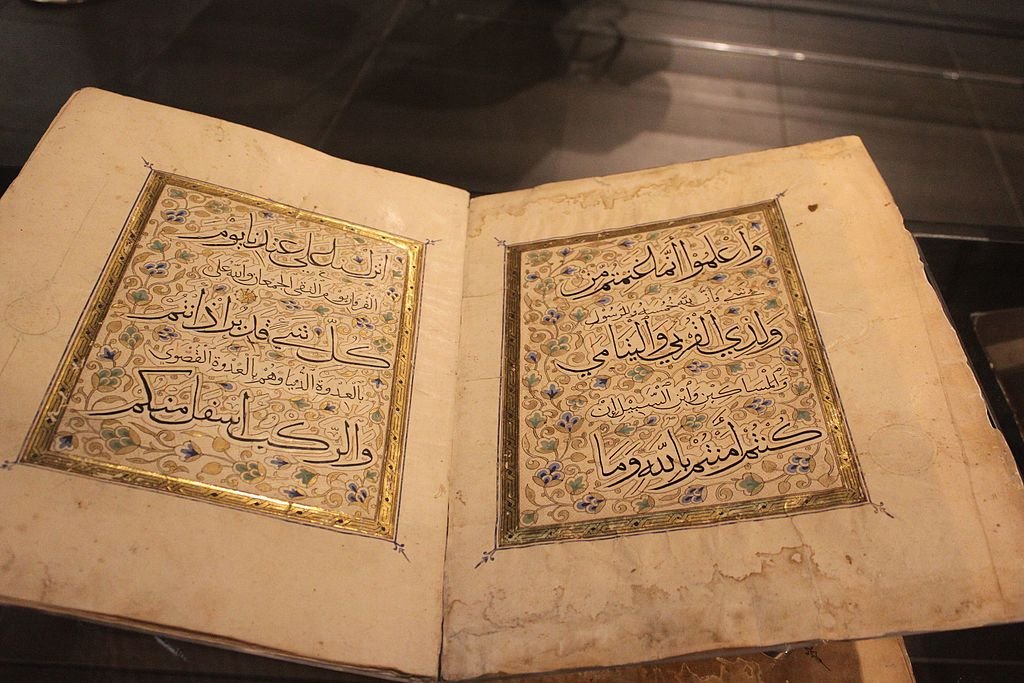 وَاعْلَمُوا أَنَّمَا غَنِمْتُمْ مِنْ
شَيْءٍ فَأَنَّ لِلَّهِ خُمُسَهُ وَلِلرَّسُولِ
وَلِذِي الْقُرْبَى وَالْيَتَامَى
وَالْمَسَاكِينِ وَابْنِ السَّبِيلِ إِنْ
كُنْتُمْ آمَنْتُمْ بِاللَّهِ وَمَا
أَنْزَلْنَا عَلَى عَبْدِنَا يَوْمَ
الْفُرْقَانِ يَوْمَ الْتَقَى الْجَمْعَانِ وَاللَّهُ عَلَى
كُلِّ شَيْءٍ قَدِيرٌ إِذْ أَنْتُمْ
بِالْعُدْوَةِ الدُّنْيَا وَهُمْ بِالْعُدْوَةِ الْقُصْوَى
وَالرَّكْبُ أَسْفَلَ مِنْكُمْ